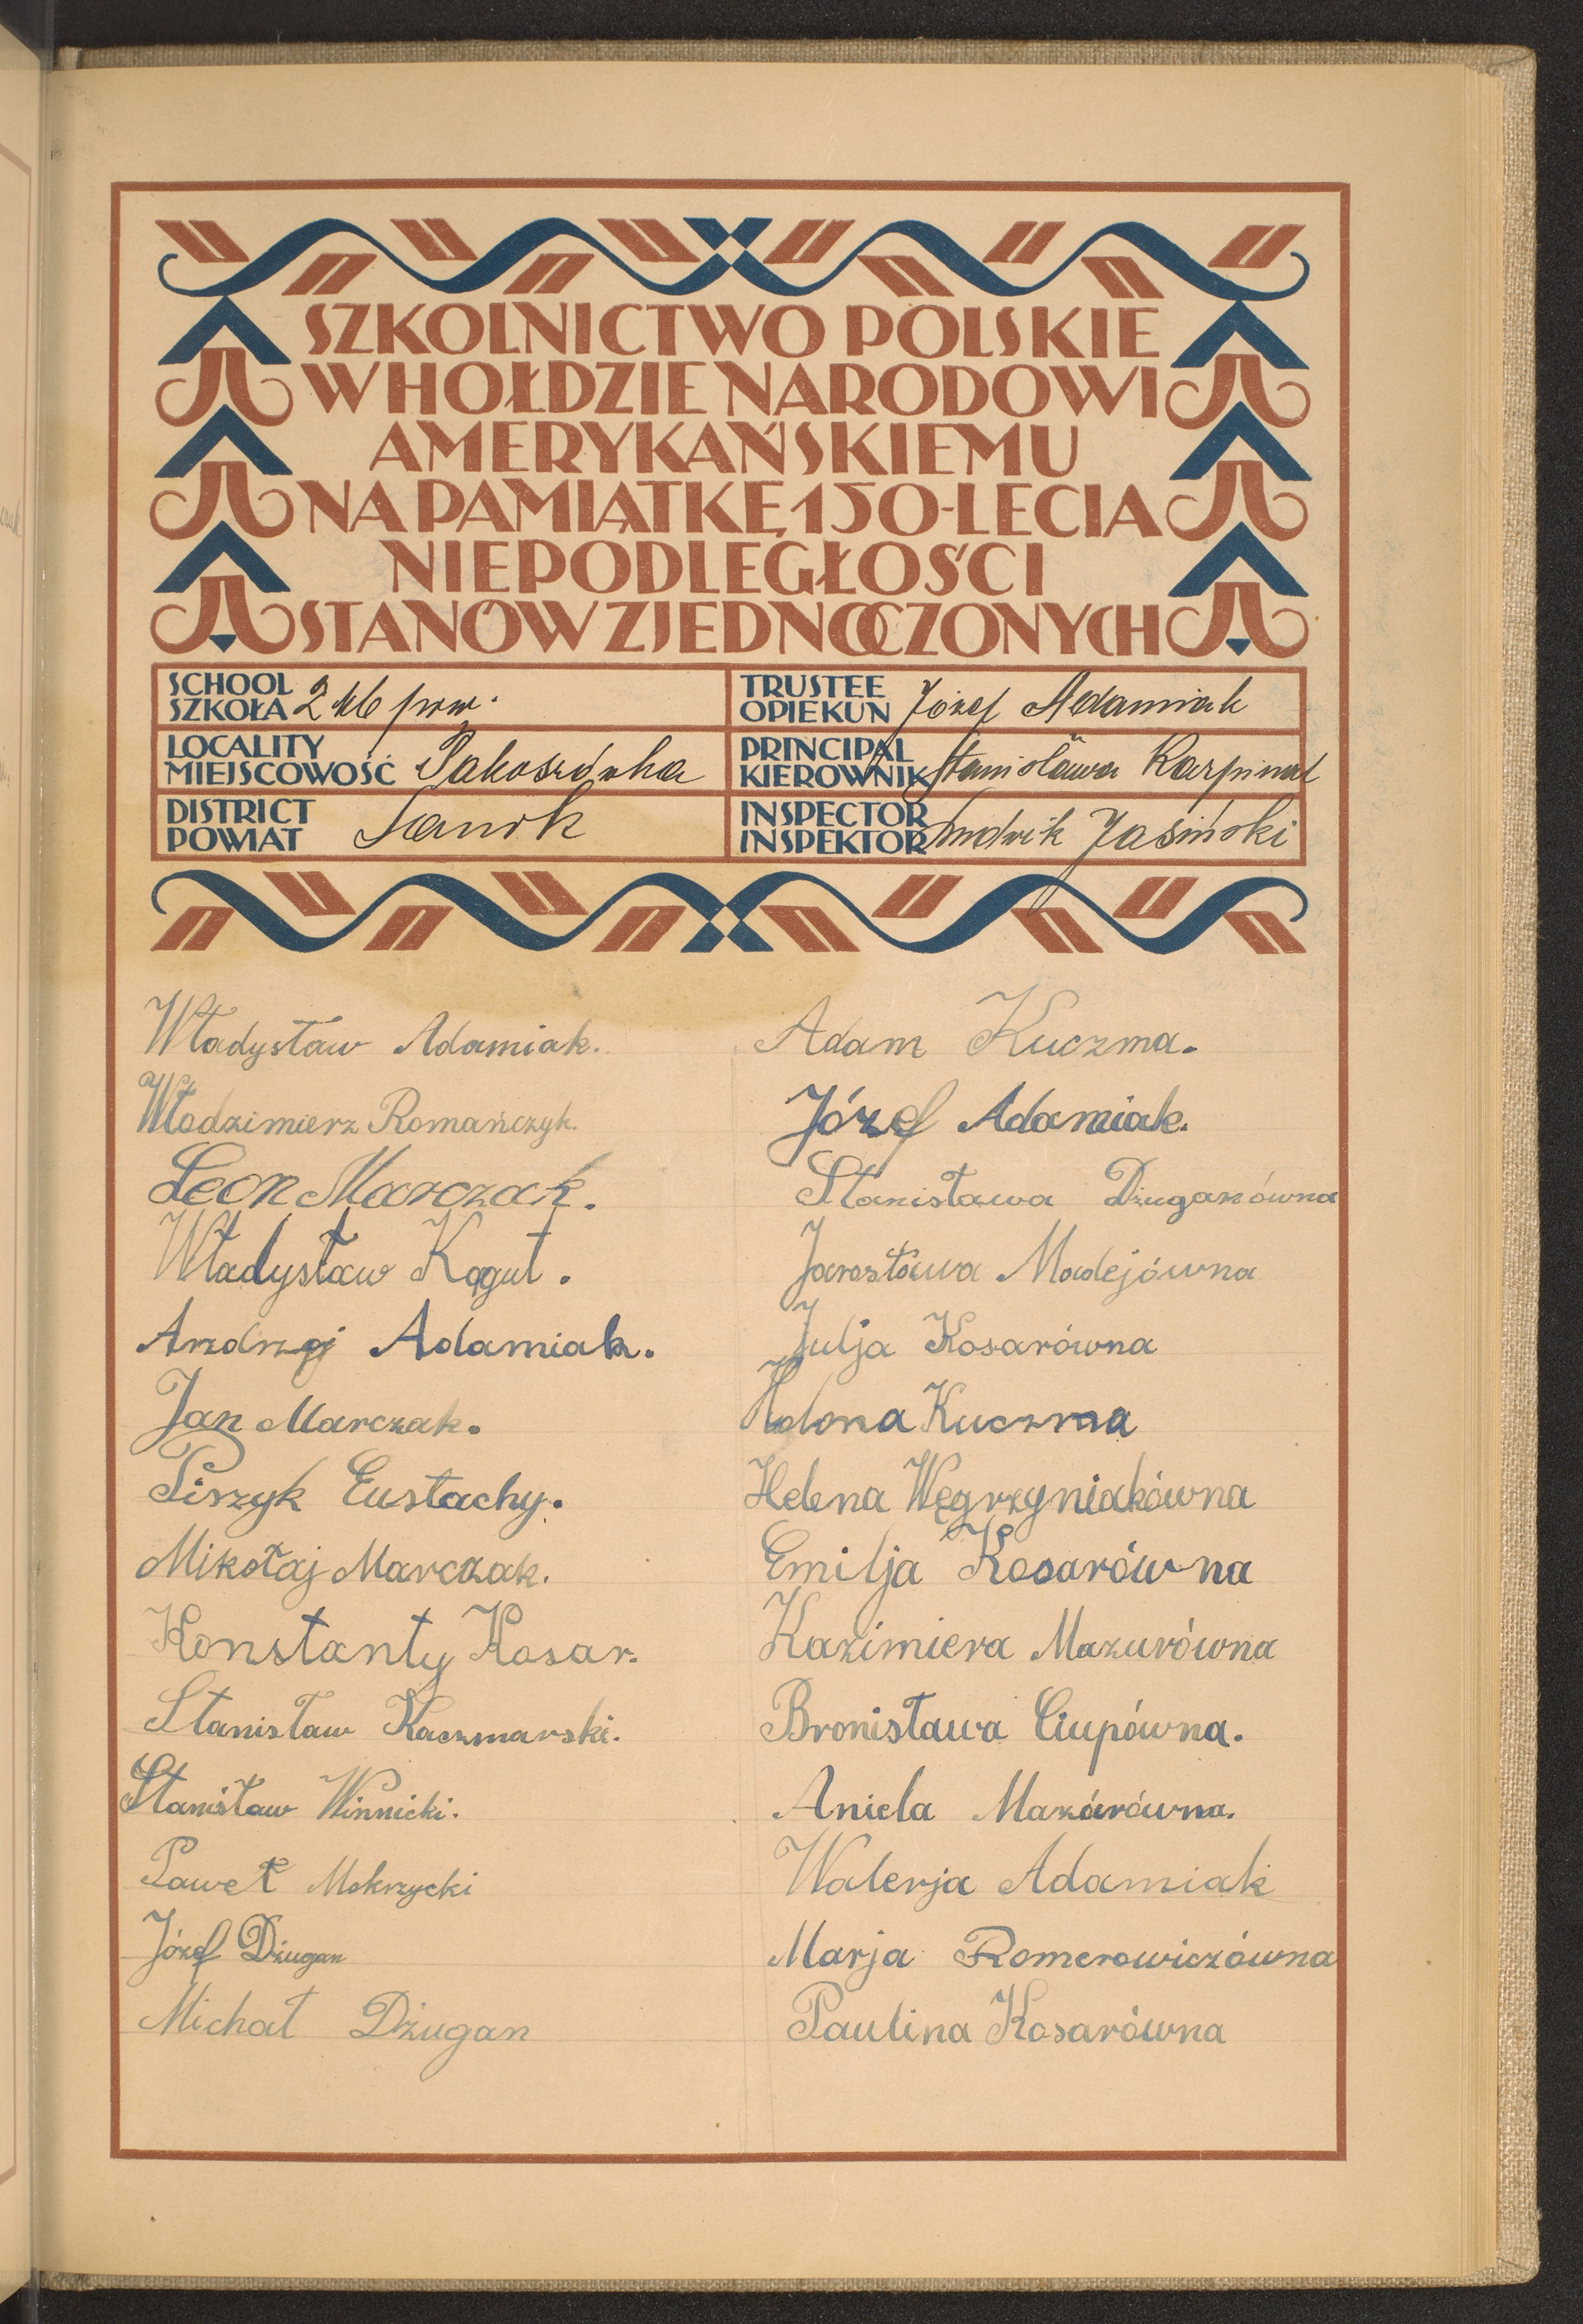 SZKOLNICTWO POLSKIE
W HOŁDZIE NARODOWI
AMERYKAŃSKIEMU
NA PAMIĄTKĘ 150-LECIA
NIEPODLEGŁOŚCI
STANÓW ZJEDNOCZONYCH
SCHOOL
SZKOŁA 2 kl
TRUSTEE
OPIEKUN Józef Adamiak
LOCALITY
MIEJSCOWOŚĆ Pakoszówka
PRINCIPAL
KIEROWNIK Stanisława Karpinal
DISTRICT
POWIAT Sanok
INSPECTOR
INSPEKTOR Ludwik Jasiński
Władysław Adamiak.
Włodzimierz Romańczyk.
Leon Marczak.
Władysław Kogut.
Andrzej Adamiak.
Jan Marczak.
Piszyk Eustachy.
Mikołaj Marczak.
Konstanty Kosar.
Stanisław Kaczmarski.
Stanisław Winnicki.
Paweł Mokrzycki
Józef Dżugan
Michał Dżugan
Adam Kuczma.
Józef Adamiak.
Stanisława Dżuganówna
Jarosława Madejówna
Julja Kosarówna
Kuczma
Helena Węgrzyniakówna
Emilja Kosarówna
Kazimiera Mazurówna
Bronisława Ciupówna.
Aniela Mazurówna.
Walerja Adamiak
Marja Romerowiczówna
Paulina Kosarówna